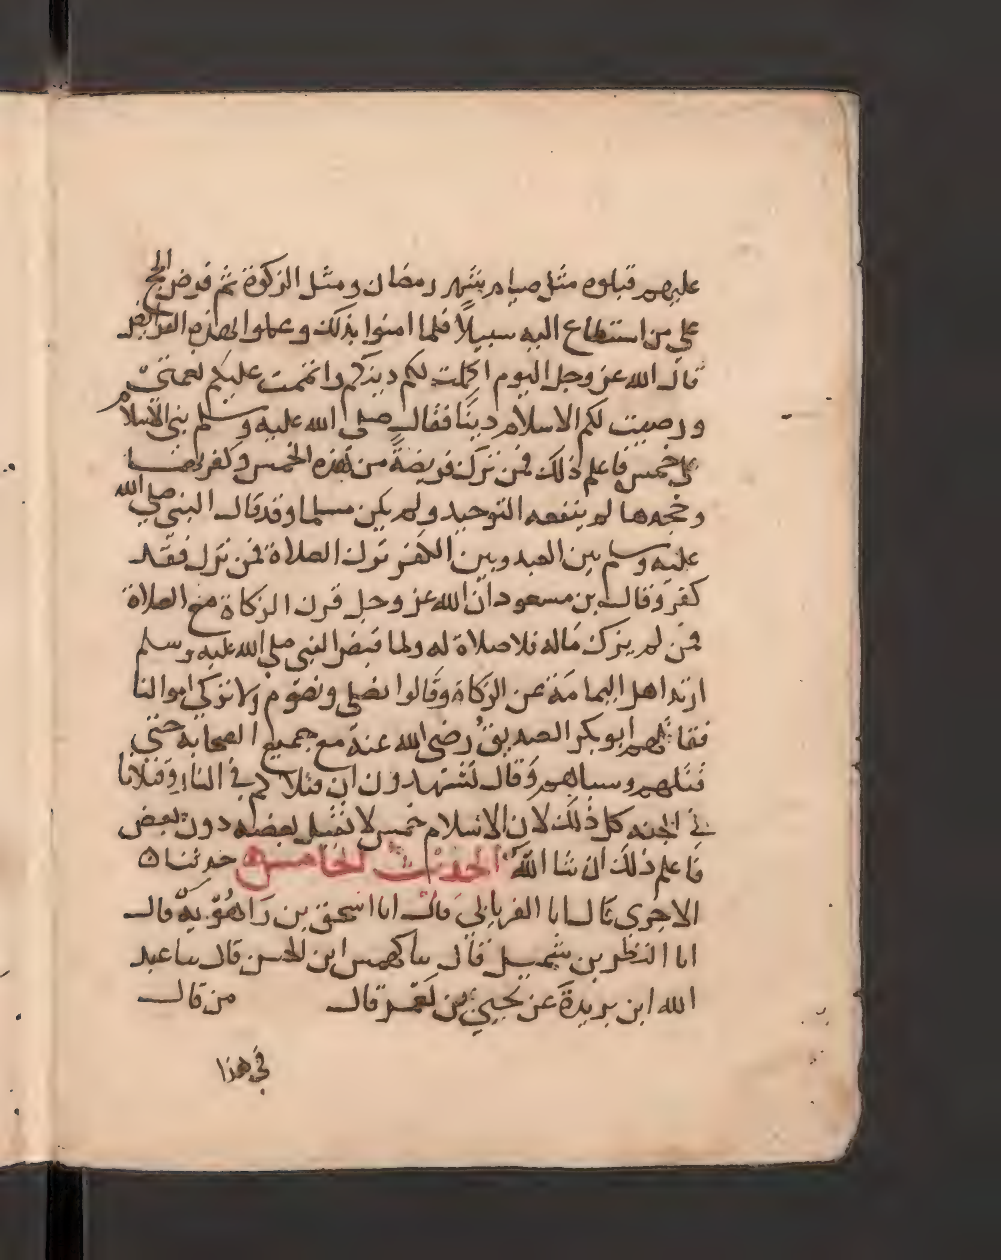 عليهم قبلوه مثل صيام شهر رمضان ومثل الزكوة ثم فرض الحج
على من استطاع اليه سبيلاً فلما امنوا بذلك وعملوا بهذه الفرائض
قال الله عز وجل اليوم اكملت لكم دينكم واتممت عليكم نعمتي
ورضيت لكم الاسلام ديناً فقال صلى الله عليه وسلم بني الاسلام
على خمس فاعلم ذلك فمن ترك فريضةً من هذه الخمس وكفر بها
وجحدها لم ينفعه التوحيد ولم يكن مسلما وقد قال النبي صلي الله
عليه وسلم بين العبد وبين الكفر ترك الصلاة فمن ترك فقد
كفر وقال بن مسعود ان الله عز وجل قرن الزكاة مع الصلاة
فمن لم يزك ماله فلا صلاة له ولما قبض النبي صلى الله عليه وسلم
ارتد اهل اليمامة عن الزكاة وقالوا نصلي ونصوم ولا نزكي اموالنا
فقاتلهم ابو بكر الصديق رضى الله عنه مع جميع الصحابة حتي
قتلهم وسباهم وقال تشهدون ان قتلاكم في النار وقتلانا
في الجنه كل ذلك لان الاسلام خمس لا تقبل بعضه دون بعض
فاعلم ذلك ان شا الله الحديث الخامس حدثنا
الاجري قال انا الفريابي قال انا اسحق بن راهويه قال
انا النظر بن شميل قال نا كهمس ابن الحسن قال نا عبد
الله ابن بريدة عن يحيي بن يعمر قال من قال
في هذا